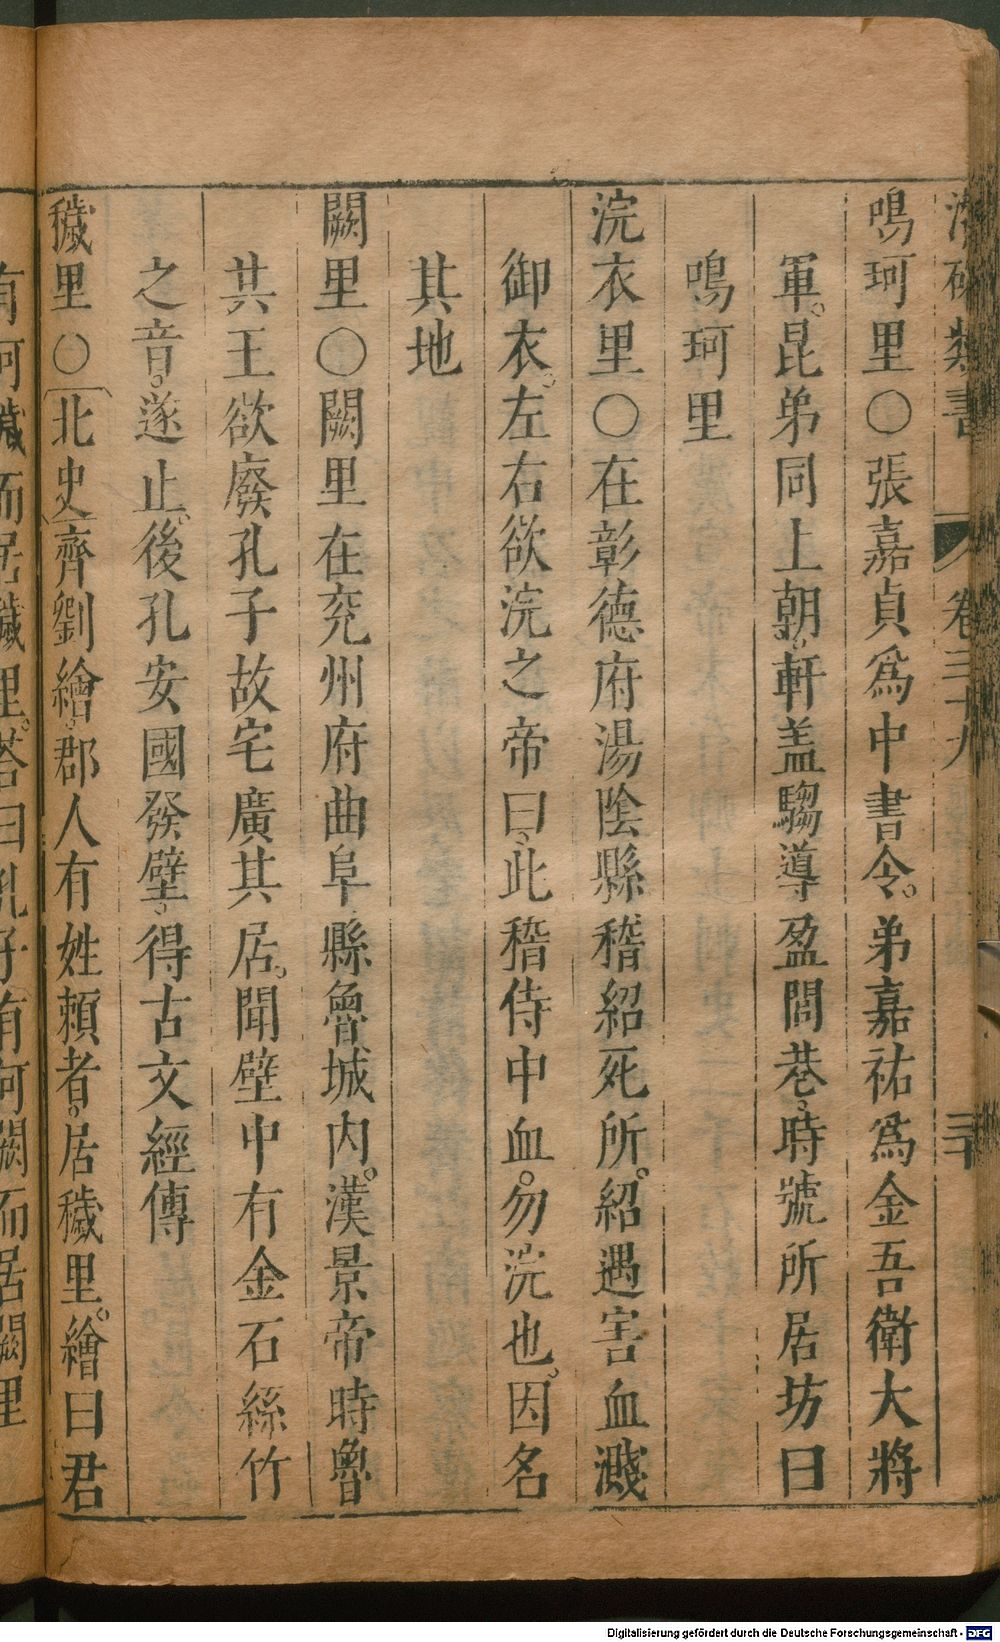 潛確類書 卷三十九 三十
鳴珂里○張嘉貞爲中書令。弟嘉祐爲金吾衛大將
軍。昆弟同上朝。軒盖騶導盈閭巷。時號所居坊曰
鳴珂里
浣衣里○在彰德府湯陰縣嵇紹死所。紹遇害血濺
御衣。左右欲浣之帝曰。此嵇侍中血。勿浣也。因名
其地
闕里○闕里在兖州府曲阜縣魯城内。漢景帝時魯
共王欲廢孔子故宅廣其居。聞壁中有金石絲竹
之音。遂止。後孔安國發壁。得古文經傳
穢里○北史齊劉繪。郡人有姓賴者。居穢里。繪曰君
有何穢而居穢里。答曰孔子有何闕而居闕里
Digitalisierung gefördert durch die Deutsche Forschungsgemeinschaft - DFG